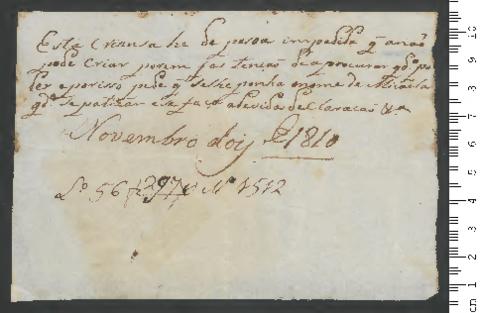 Esta Criansa he de pesoa impedida q̃ anaõ
pode Criar porem fas tencaõ dea procurar qdº po
der eporisso pede q̃ selhe ponha onome de
qdº se batizar e se faça adevida declaracaõ &ª
Novembro doij de 1810
Lº 56 f 297 Nº 1512